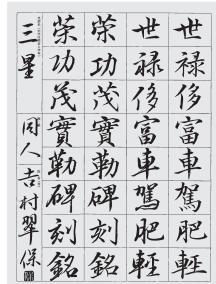 世禄侈富車駕肥輕
世禄侈富車駕肥輕
策功茂實勒碑刻銘
策功茂實勒碑刻銘
三星 同人 吉村翠保